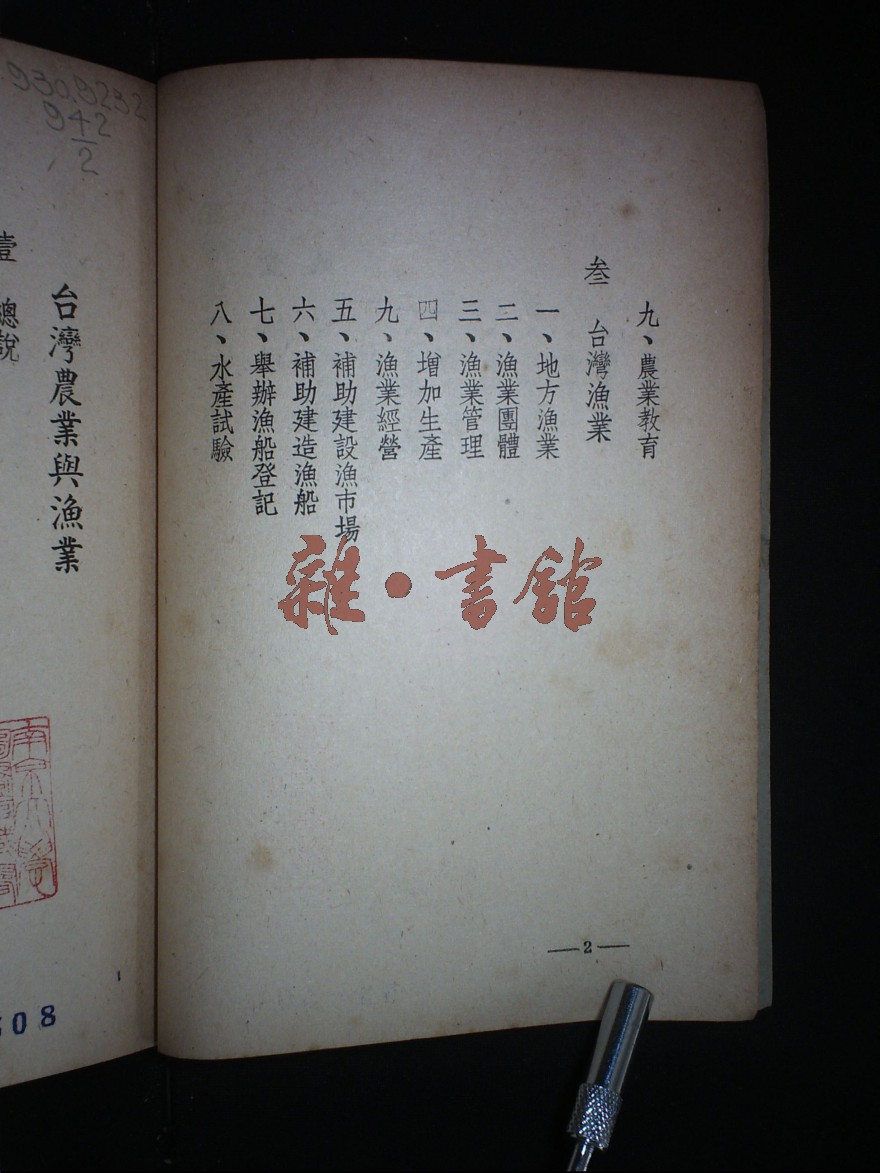 九、農業教育
叁 台灣漁業
一、地方漁業
二、漁業團體
三、漁業管理
四、增加生產
九、漁業經營
五、補助建設漁市場
六、補助建造漁船
七、舉辦漁船登記
八、水產試驗
—2—
雜·書館
台灣農業與漁業
壹 總說
930.9232
942
2
南京大學
808
1